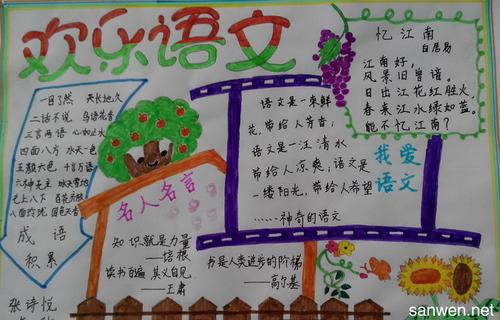 欢乐语文
一目了然 天长地久
二话不说 鸟语花香
三言两语 心如止水
四面八方 水天一色
五颜六色 千言万语
六神无主 冰天雪地
七上八下 百花齐放
八面玲珑 国色天香
成语
积累
张诗悦
名人名言
知识就是力量
——培根
读书百遍 其义自见
——王肃
语文是一束鲜
花,带给人芳香;
语文是一汪清水
带给人凉爽;语文是
一缕阳光,带给人希望
……神奇的语文
书是人类进步的阶梯
——高尔基
忆江南
白居易
江南好,
风景旧曾谙。
日出江花红胜火,
春来江水绿如蓝。
能不忆江南?
我爱
语文
sanwen.net